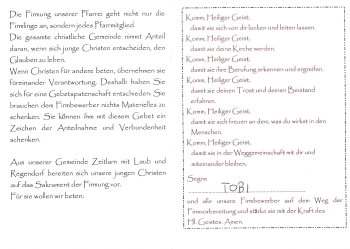 Die Firmung unserer Pfarrei geht nicht nur die
Firmlinge an, sondern jedes Pfarrmitglied.
Die gesamte christliche Gemeinde nimmt Anteil
daran, wenn sich junge Christen entscheiden, den
Glauben zu leben.
Wenn Christen für andere beten, übernehmen sie
füreinander Verantwortung. Deshalb haben Sie
sich für eine Gebetspatenschaft entschieden. Sie
brauchen dem Firmbewerber nichts Materielles zu
schenken. Sie können ihm mit diesem Gebet ein
Zeichen der Anteilnahme und Verbundenheit
schenken.
Aus unserer Gemeinde Zeitlarn mit Laub und
Regendorf bereiten sich unsere jungen Christen
auf das Sakrament der Firmung vor.
Für sie wollen wir beten.
Komm, Heiliger Geist,
damit sie sich von dir locken und leiten lassen.
Komm, Heiliger Geist,
damit sie deine Kirche werden.
Komm, Heiliger Geist,
damit sie ihre Berufung erkennen und ergreifen.
Komm, Heiliger Geist,
damit sie deinen Trost und deinen Beistand
erfahren.
Komm, Heiliger Geist,
damit sie sich freuen an dem, was du wirkst in den
Menschen.
Komm, Heiliger Geist,
damit sie in der Weggemeinschaft mit dir und
miteinander bleiben.
Segne
TOBI
und alle unsere Firmbewerber auf dem Weg der
Firmvorbereitung und stärke sie mit der Kraft des
Hl. Geistes. Amen.